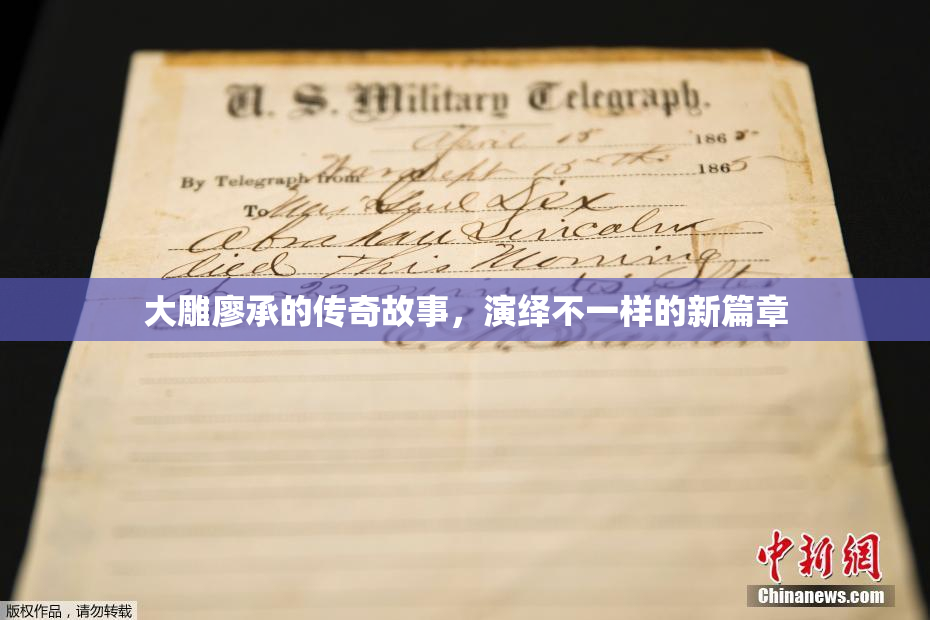 U. S. Military Telegraph.
April 15 1865
By Telegraph from War Dept 15th 1865
To Maj Genl Dix
Abraham Lincoln
died This Morning
22 minutes after
大雕廖承的传奇故事，演绎不一样的新篇章
E. M. Stanton
中新網
Chinanews.com
版权作品，请勿转载